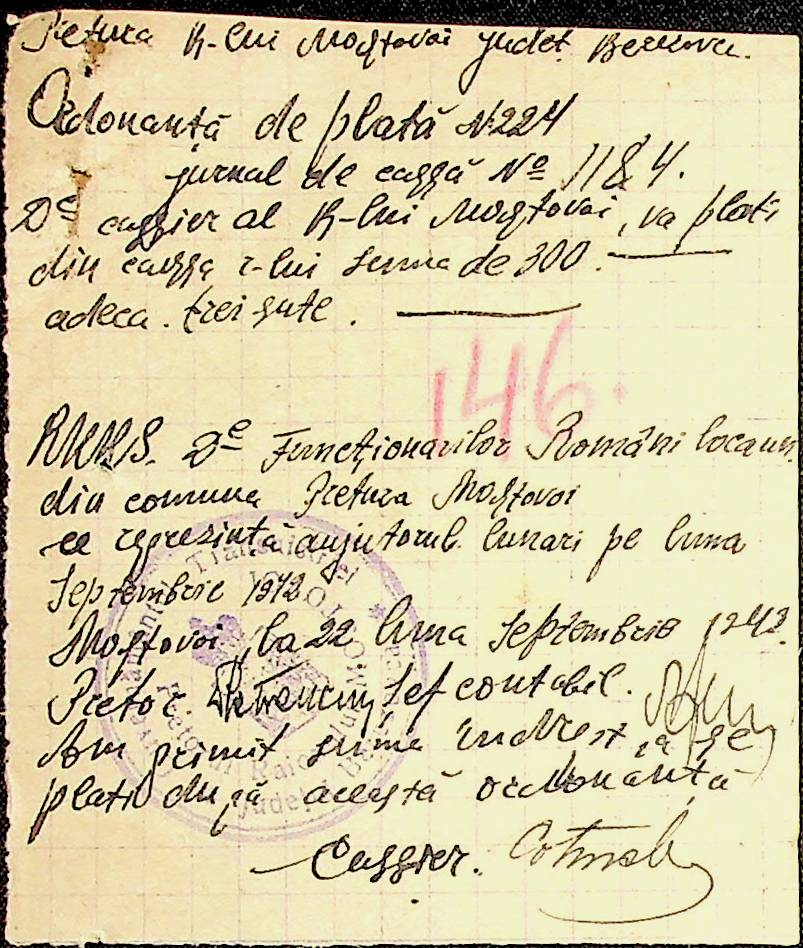 Pretura R-lui Mostovoi judeţ. Berezovca.
Ordonanţă de plată №224
jurnal de cassă № 1184.
Dl cassier al R-lui Mostovoi, va plati
din cassa r-lui suma de 300.
adeca. trei sute.
146.
Dl Funcţionarilor Români locali
din comuna Pretura Mostovoi
ce reprezintă aujutorul lunari pe luna
Septembrie 1942
Mostovoi, la 22 luna Septembrie 1942.
Pretor. Şef contabil.
Am primit suma
plati după acestă ordonanţă
Cassier.